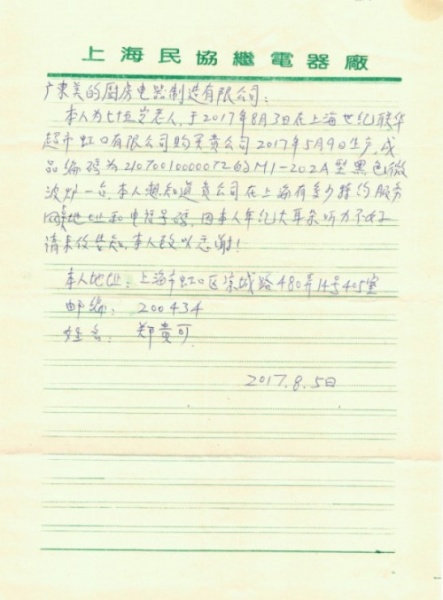 上海民協繼電器廠
广东美的厨房电器制造有限公司：
本人为七位岁老人，于2017年8月3日在上海世纪联华
超市虹口有限公司购买贵公司2017年5月9日生产，成
品编码为21070010000072 M1-202A型黑色微
波炉一台，本人想知道贵公司在上海有多少特约服务
网 地址和电话号码，因本人年纪大耳朵听力不好
请来信告知，本人致以感谢！
本人地址：上海市虹口区 城路480弄14号405室
邮编：200434
姓名：郑贵可
2017.8.5日